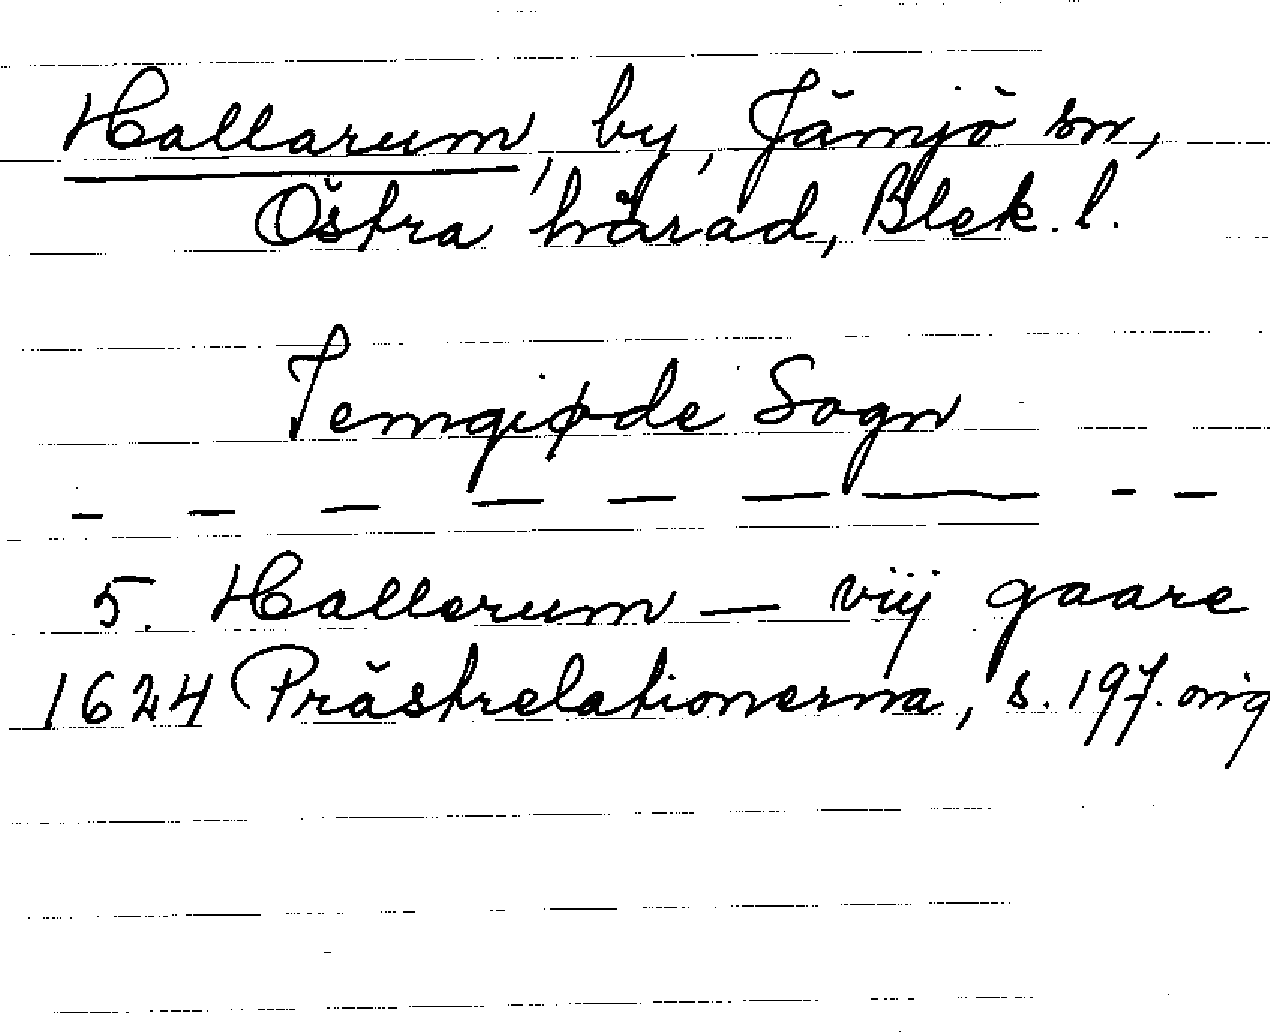 Hallarum, by, Jämjö sn,
Östra härad, Blek. l.
Jemgiøde Sogn
— — — — — — — — —
5. Hallerum — viij gaare
1624 Prästrelationerna, s. 197. orig